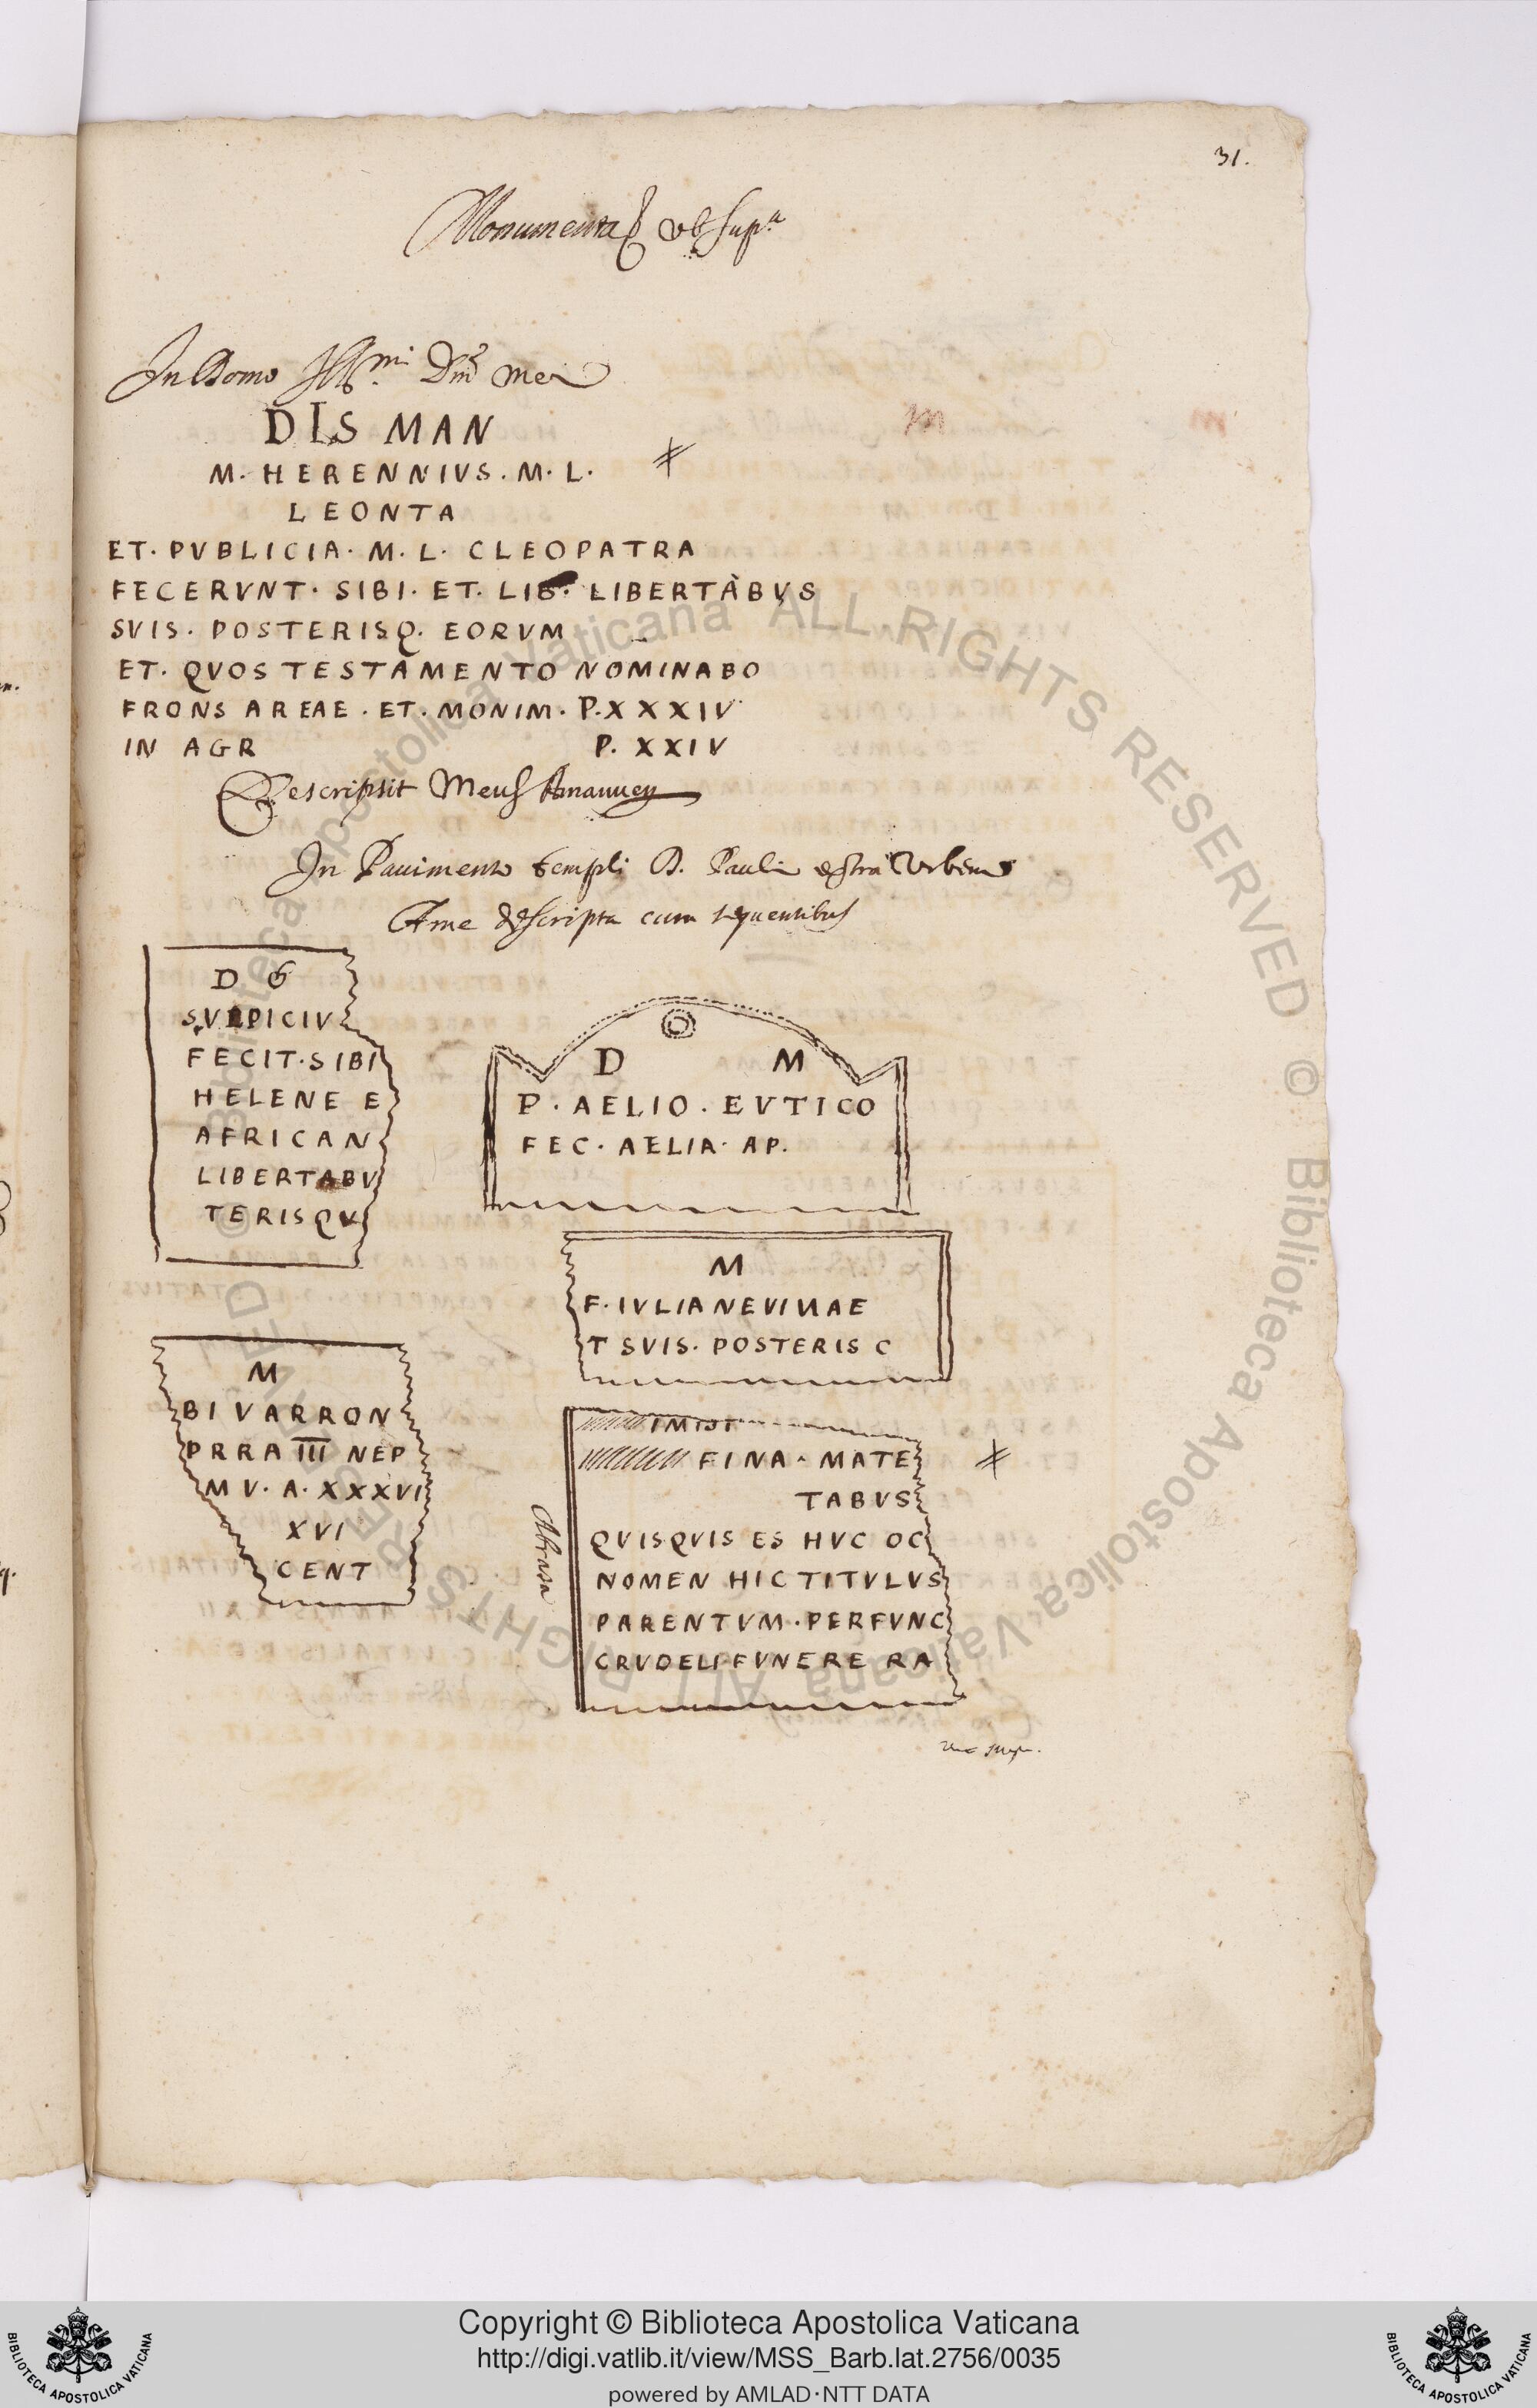 31.
Monumenta ubi sup.a
In Domo Ill.mi Dni mei
DIS MAN
M. HERENNIVS. M. L.
LEONTA
ET. PVBLICIA. M. L. CLEOPATRA
FECERVNT. SIBI. ET. LIB. LIBERTÀBVS
SVIS. POSTERISQ. EORVM
ET. QVOS TESTAMENTO NOMINABO
FRONS AREAE. ET. MONIM. P. XXXIV
IN AGR P. XXIV
Descripsit Meus Amanuen
In Pauimento templi D. Pauli extra Urbem
A me descripta cum sequentibus
D
SVLPICIV
FECIT. SIBI
HELENE E
AFRICAN
LIBERTABV
TERISQV
D M
P. AELIO. EVTICO
FEC. AELIA. AP.
M
F. IVLIANEVINAE
T SVIS. POSTERIS C
M
BI VARRON
PRRA III NEP
M V. A. XXXVI
XVI
CENT
FINA. MATE
TABVS
Abrasa
QVISQVIS ES HVC OC
NOMEN HIC TITVLVS
PARENTVM. PERFVNC
CRVDELI FVNERE RA
m
m
Copyright © Biblioteca Apostolica Vaticana
http://digi.vatlib.it/view/MSS_Barb.lat.2756/0035
powered by AMLAD·NTT DATA
BIBLIOTECA APOSTOLICA VATICANA
BIBLIOTECA APOSTOLICA VATICANA
© Biblioteca Apostolica Vaticana ALL RIGHTS RESERVED
© Biblioteca Apostolica Vaticana ALL RIGHTS RESERVED